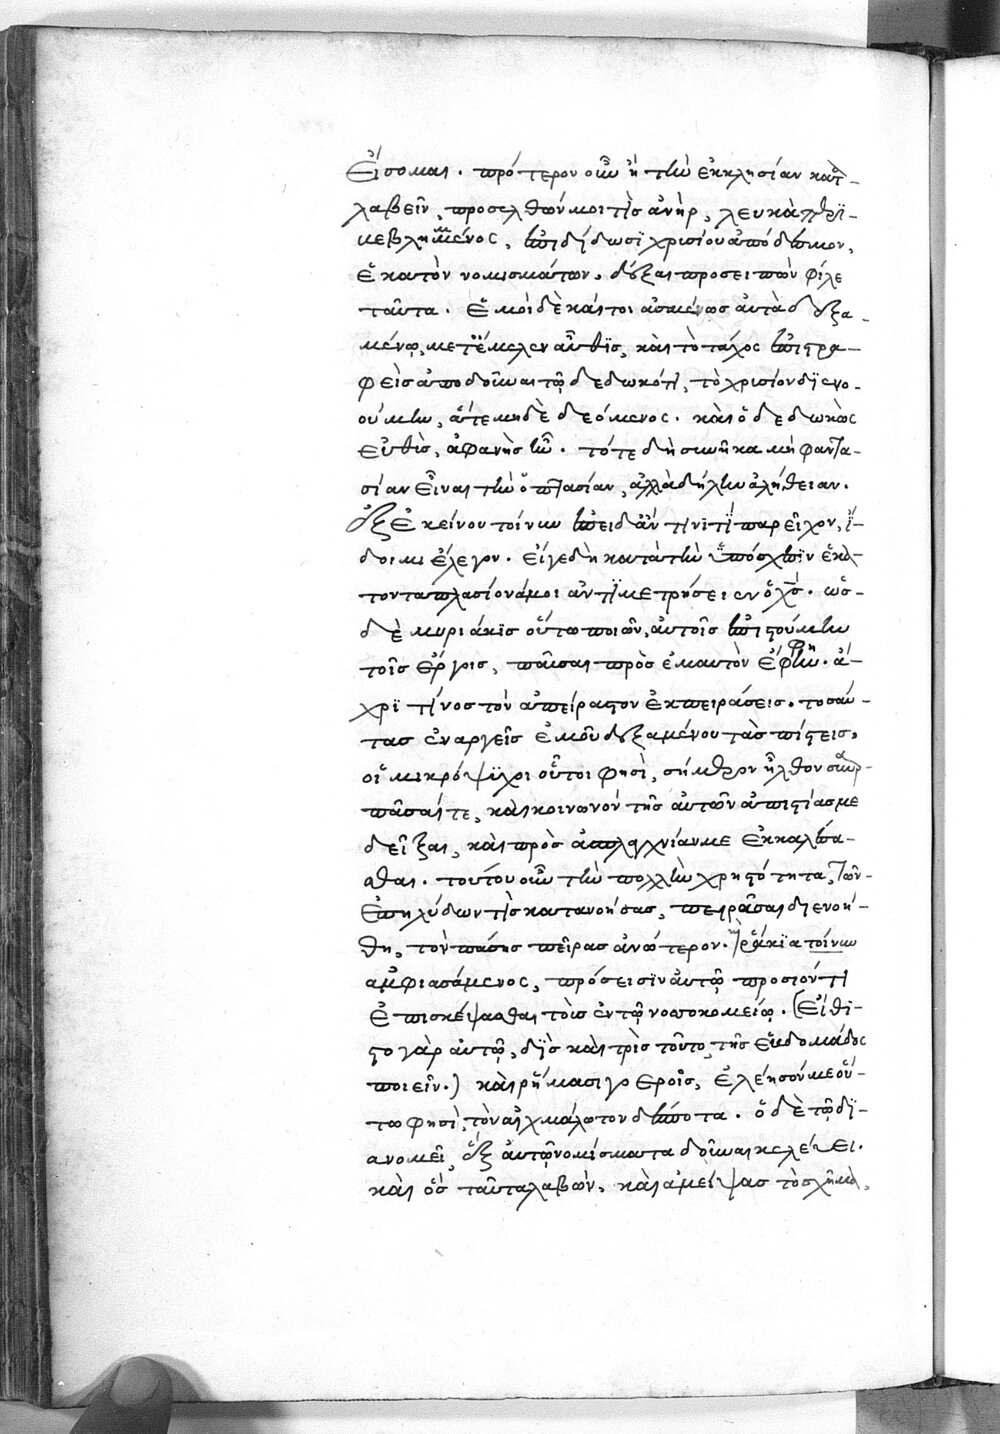 εἴσομαι. πρότερον οὖν ἢ τὴν ἐκκλησίαν κατ-
λαβεῖν, προσελθών μοι τὶς ἀνὴρ, λευκὰ περϊ-
κεβλημμένος, ἐπιδίδωσϊ χρισίου ἀπόδεσμον,
ἑκατὸν νομισμάτων. δέξαι προσειπὼν φίλε
ταῦτα. ἐμοὶ δὲ καίτοι ἀσμένως αὐτὰ δεξα-
μένῳ, μετέμελεν αὖθϊς, καὶ τὸ τάχος ἐπιστρα-
φεὶς ἀποδοῦναι τῷ δεδωκότι, τὸ χρισίον δϊενο-
ούμην, ἅτε μηδὲ δεόμενος. καὶ ὁ δεδωκὼς
εὐθὶς, ἀφανὴς ἦν. τότε δὴ συνῆκα μὴ φαντα-
σίαν εἶναι τὴν ὀπτασίαν, ἀλλὰ δήλην ἀλήθειαν.
ἐξ ἐκείνου τοίνυν ἐπειδάν τινϊ τϊ παρεῖχον, ἴ-
δοιμι ἔλεγον. εἴγε δὴ κατὰ τὴν ὑπόσχεσϊν ἑκα-
τονταπλασίονά μοι ἀντϊμετρήσειεν ὁ χς. ὡς
δὲ μυριάκϊς οὕτω ποιῶν, αὐτοῖς ἐπιστούμην
τοῖς ἔργοις, παῦσαι πρὸς ἐμαυτὸν ἔφην. ἄ-
χρϊ τίνος τὸν ἀπείραστον ἐκπειράσεις. τοσαύ-
τας ἐναργεῖς ἐμοῦ δεξαμένου τὰς πίστεις,
οἱ μικρόψϊχοι οὗτοι φησὶ, σήμερον ἦλθον συναρ-
πᾶσαί τε, καὶ κοινωνόν τῆς αὐτῶν ἀπιστίας με
δεῖξαι, καὶ πρὸς ἀσπλαγχνίαν με ἐκκαλέσα-
σθαι. τούτου οὖν τὴν πολλὴν χρηστότητα, τῶν
ἐπηλύδων τὶς κατανοήσας, πειρᾶσαι διενοή-
θη, τὸν πάσης πείρας ἀνώτερον. ῥάκϊα τοίνυν
ἀμφιασάμενος, πρόσεισϊν αὐτῷ προσιόντι
ἐπισκέψασθαι τοὺς ἐν τῷ νοσοκομείῳ. (εἴθϊ-
στο γὰρ αὐτῷ, δϊς καὶ τρὶς τοῦτο τῆς ἑβδομάδος
ποιεῖν.) καὶ ῥήμασι γοεροῖς, ἐλέησόν με οὕ-
τω φησὶ, τὸν αἰχμάλωτον δέσποτα. ὁ δὲ τῷ δϊ-
ανομεῖ, ἓξ αὐτῷ νομίσματα δοῦναι κελεύει.
καὶ ὃς ταῦτα λαβών, καὶ ἀμείψας τὸ σχῆμα,